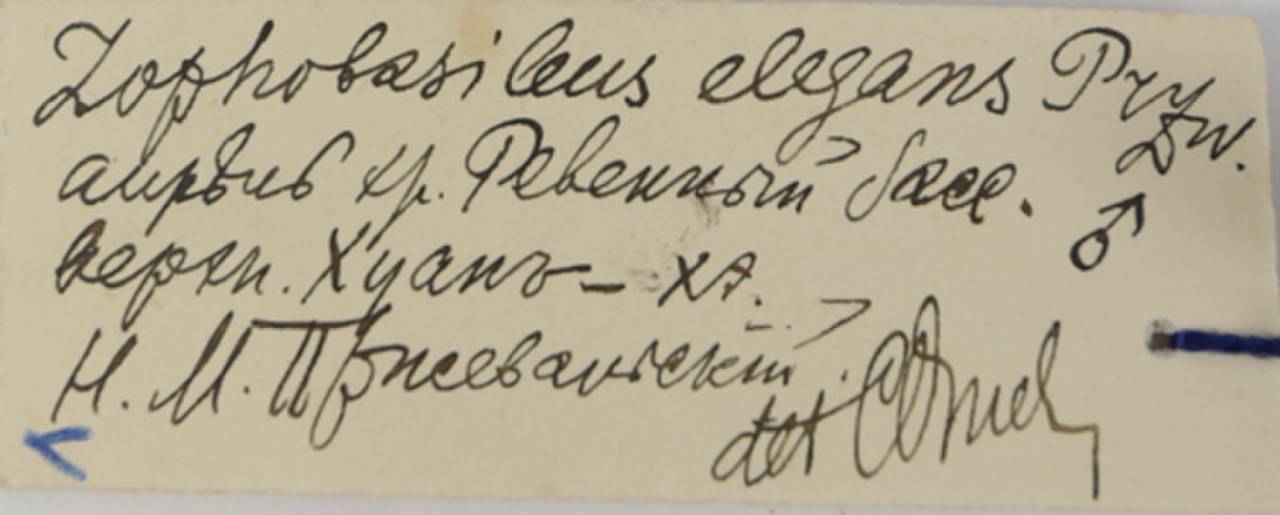 Zophobasileus elegans Przw.
апрѣль хр. Ревенный басс.
верхн. Хуанъ-хэ. ♂
Н. М. Пржевальскій.
det